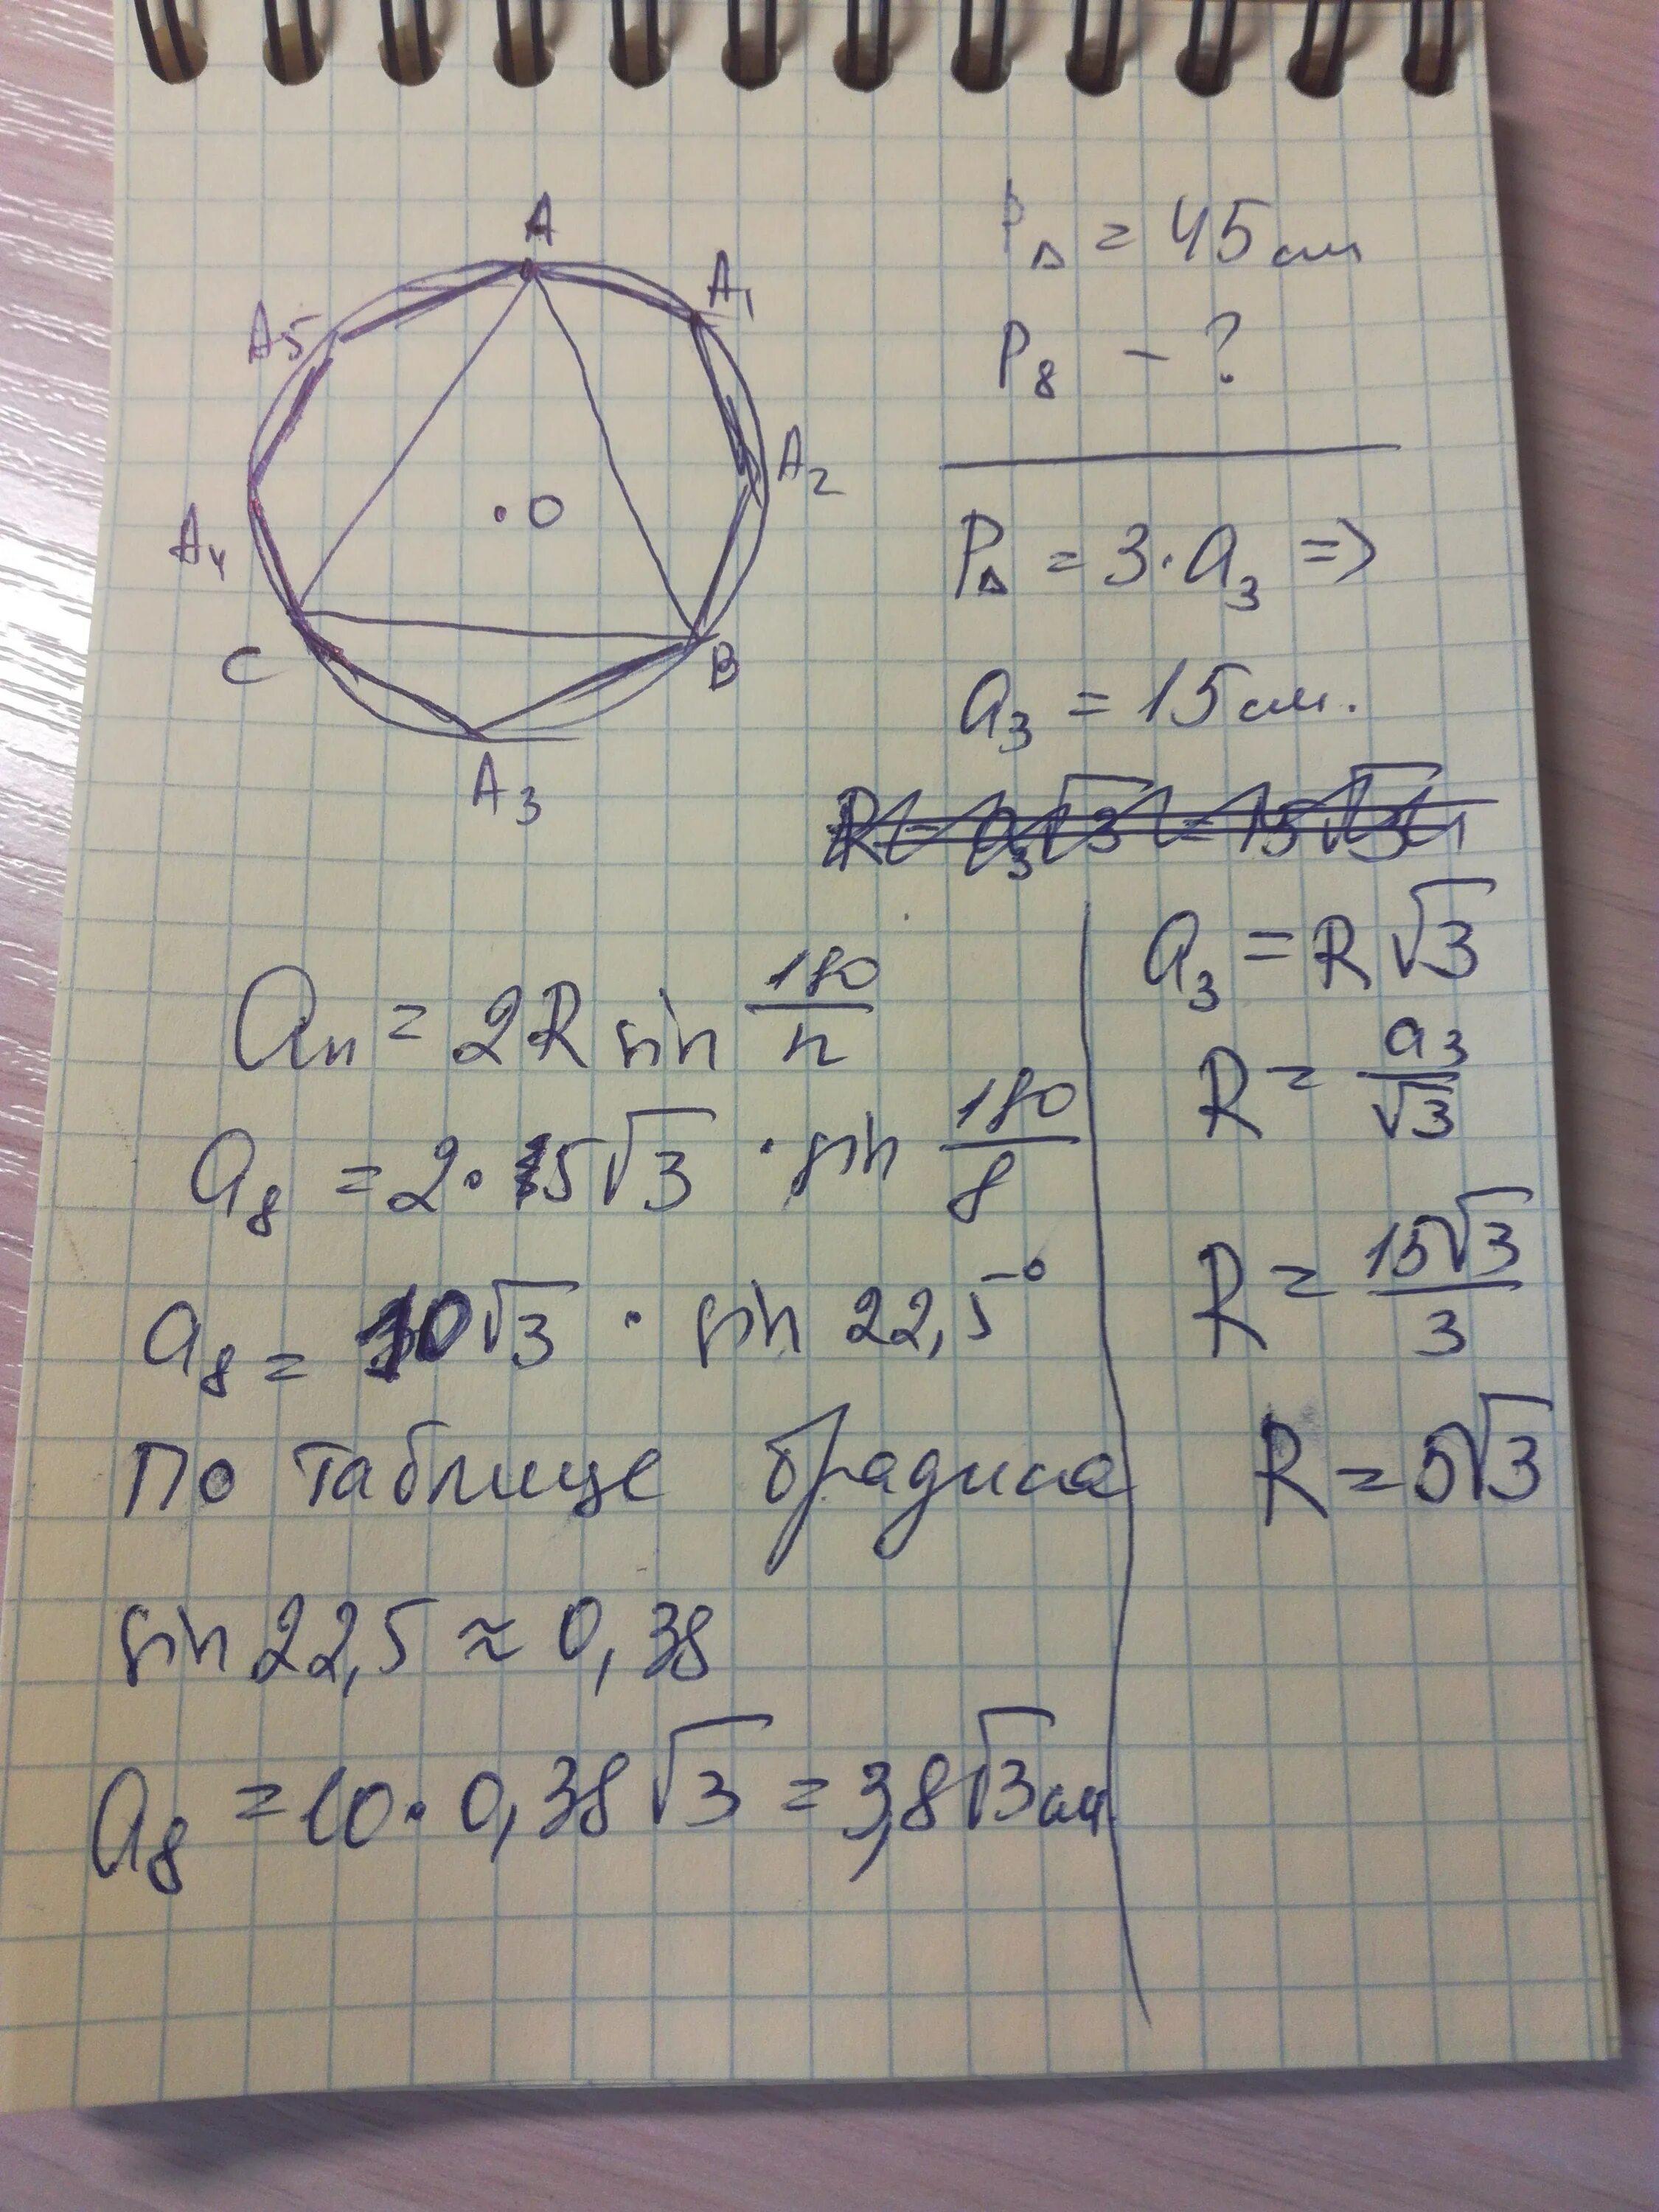 A
A₁
A₅
A₂
.O
A₄
C
B
A₃
P△ = 45 см
P₈ - ?
P△ = 3·a₃ =>
a₃ = 15 см.
aₙ = 2R sin 180/n
a₈ = 2·5√3 · sin 180/8
a₈ = 10√3 · sin 22,5°
По таблице брадиса
sin 22,5 ≈ 0,38
a₈ = 10·0,38√3 = 3,8√3 см
a₃ = R√3
R = a₃/√3
R = 15√3/3
R = 5√3